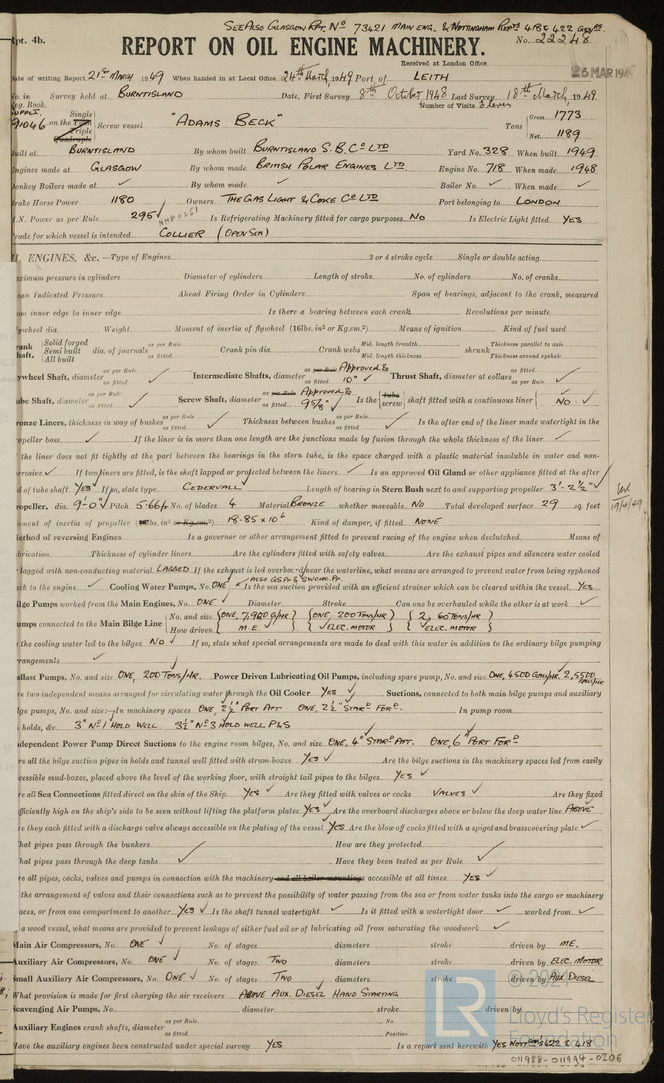 SEE ALSO GLASGOW RPT. No 73421 MAIN ENG. & NOTTINGHAM REPTS 418 & 422
Rpt. 4b.
REPORT ON OIL ENGINE MACHINERY.
No. 22248
Received at London Office
26 MAR 19
Date of writing Report 21st March 1949 When handed in at Local Office 24th March, 1949 Port of LEITH
No. in Survey held at BURNTISLAND Date, First Survey 8th October 1948 Last Survey 18th March, 1949
Reg. Book. Number of Visits
91046 on the Single Triple Quadruple Screw vessel "ADAMS BECK" Tons Gross 1773 Net 1189
Built at BURNTISLAND By whom built BURNTISLAND S.B. Co LTD Yard No. 328 When built 1949
Engines made at GLASGOW By whom made BRITISH POLAR ENGINES LTD. Engine No. 718 When made 1948
Donkey Boilers made at ✓ By whom made ✓ Boiler No. ✓ When made ✓
Brake Horse Power 1180 Owners THE GAS LIGHT & COKE CO LTD Port belonging to LONDON
M.N. Power as per Rule 295 ✓ Is Refrigerating Machinery fitted for cargo purposes NO Is Electric Light fitted YES
Trade for which vessel is intended COLLIER (OPEN SEA)
OIL ENGINES, &c.—Type of Engines 2 or 4 stroke cycle Single or double acting
Maximum pressure in cylinders Diameter of cylinders Length of stroke No. of cylinders No. of cranks
Mean Indicated Pressure Ahead Firing Order in Cylinders Span of bearings, adjacent to the crank, measured
from inner edge to inner edge Is there a bearing between each crank Revolutions per minute
Flywheel dia. Weight Moment of inertia of flywheel (16lbs. in² or Kg.cm.²) Means of ignition Kind of fuel used
Crank Shaft, Solid forged Semi built All built dia. of journals as per Rule as fitted Crank pin dia. Crank webs Mid. length breadth Mid. length thickness shrunk Thickness parallel to axis Thickness around eyehole
Flywheel Shaft, diameter as per Rule as fitted ✓ Intermediate Shafts, diameter as per Rule Approved as fitted 10" ✓ Thrust Shaft, diameter at collars as fitted as per Rule ✓
Tube Shaft, diameter as per Rule as fitted ✓ Screw Shaft, diameter as per Rule Approved as fitted 9 5/8" ✓ Is the tube screw shaft fitted with a continuous liner NO ✓
Bronze Liners, thickness in way of bushes as per Rule as fitted ✓ Thickness between bushes as per Rule as fitted ✓ Is the after end of the liner made watertight in the
propeller boss ✓ If the liner is in more than one length are the junctions made by fusion through the whole thickness of the liner ✓
If the liner does not fit tightly at the part between the bearings in the stern tube, is the space charged with a plastic material insoluble in water and non-
corrosive ✓ If two liners are fitted, is the shaft lapped or protected between the liners ✓ Is an approved Oil Gland or other appliance fitted at the after
end of tube shaft YES ✓ If so, state type CEDERVALL Length of bearing in Stern Bush next to and supporting propeller 3'-2½" ✓
Propeller, dia. 9'-0" ✓ Pitch 5·66 No. of blades 4 Material BRONZE whether moveable NO Total developed surface 29 sq. feet
Moment of inertia of propeller (16lbs. in² or Kg.cm.²) 18·85 x 10⁶ Kind of damper, if fitted NONE
Method of reversing Engines Is a governor or other arrangement fitted to prevent racing of the engine when declutched Means of
lubrication Thickness of cylinder liners Are the cylinders fitted with safety valves Are the exhaust pipes and silencers water cooled
or lagged with non-conducting material LAGGED If the exhaust is led overboard near the waterline, what means are arranged to prevent water from being syphoned
back to the engine ✓ Cooling Water Pumps, No. ONE Is the sea suction provided with an efficient strainer which can be cleared within the vessel YES
Bilge Pumps worked from the Main Engines, No. ONE ✓ Diameter Stroke Can one be overhauled while the other is at work ✓
Pumps connected to the Main Bilge Line No. and size ONE, 7,920 G/HR ONE, 200 TONS/HR 2, 60 TONS/HR
How driven M.E. ELEC. MOTOR ELEC. MOTOR
Is the cooling water led to the bilges NO ✓ If so, state what special arrangements are made to deal with this water in addition to the ordinary bilge pumping
arrangements ✓
Ballast Pumps, No. and size ONE, 200 TONS/HR. Power Driven Lubricating Oil Pumps, including spare pump, No. and size ONE, 4500 GALS/HR
Are two independent means arranged for circulating water through the Oil Cooler YES ✓ Suctions, connected to both main bilge pumps and auxiliary
bilge pumps, No. and size:—In machinery spaces ONE, 2½" PORT AFT ONE, 2½" STARD FORD. In pump room
In holds, &c. 3" No 1 HOLD WELL. 3½" No 3 HOLD WELL P&S
Independent Power Pump Direct Suctions to the engine room bilges, No. and size ONE, 4" STARD AFT. ONE, 6" PORT FORD
Are all the bilge suction pipes in holds and tunnel well fitted with strum-boxes YES ✓ Are the bilge suctions in the machinery spaces led from easily
accessible mud-boxes, placed above the level of the working floor, with straight tail pipes to the bilges YES ✓
Are all Sea Connections fitted direct on the skin of the Ship YES ✓ Are they fitted with valves or cocks VALVES ✓ Are they fixed
sufficiently high on the ship's side to be seen without lifting the platform plates YES ✓ Are the overboard discharges above or below the deep water line ABOVE
Are they each fitted with a discharge valve always accessible on the plating of the vessel YES Are the blow off cocks fitted with a spigot and brass covering plate ✓
What pipes pass through the bunkers How are they protected
What pipes pass through the deep tanks ✓ Have they been tested as per Rule ✓
Are all pipes, cocks, valves and pumps in connection with the machinery and all boiler mountings accessible at all times YES ✓
Is the arrangement of valves and their connections such as to prevent the possibility of water passing from the sea or from water tanks into the cargo or machinery
spaces, or from one compartment to another YES ✓ Is the shaft tunnel watertight ✓ Is it fitted with a watertight door ✓ worked from ✓
If a wood vessel, what means are provided to prevent leakage of either fuel oil or of lubricating oil from saturating the woodwork ✓
Main Air Compressors, No. ONE ✓ No. of stages diameters stroke driven by M.E.
Auxiliary Air Compressors, No. ONE ✓ No. of stages TWO diameters stroke driven by ELEC. MOTOR
Small Auxiliary Air Compressors, No. ONE ✓ No. of stages TWO ✓ diameters stroke driven by AUX. DIESEL
What provision is made for first charging the air receivers ABOVE AUX. DIESEL HAND STARTING
Scavenging Air Pumps, No. diameter stroke driven by
Auxiliary Engines crank shafts, diameter as per Rule as fitted No. Position
Have the auxiliary engines been constructed under special survey YES Is a report sent herewith YES NOTTM 422 & 418
LR © 2021 Lloyd's Register Foundation
011988-011994-0206